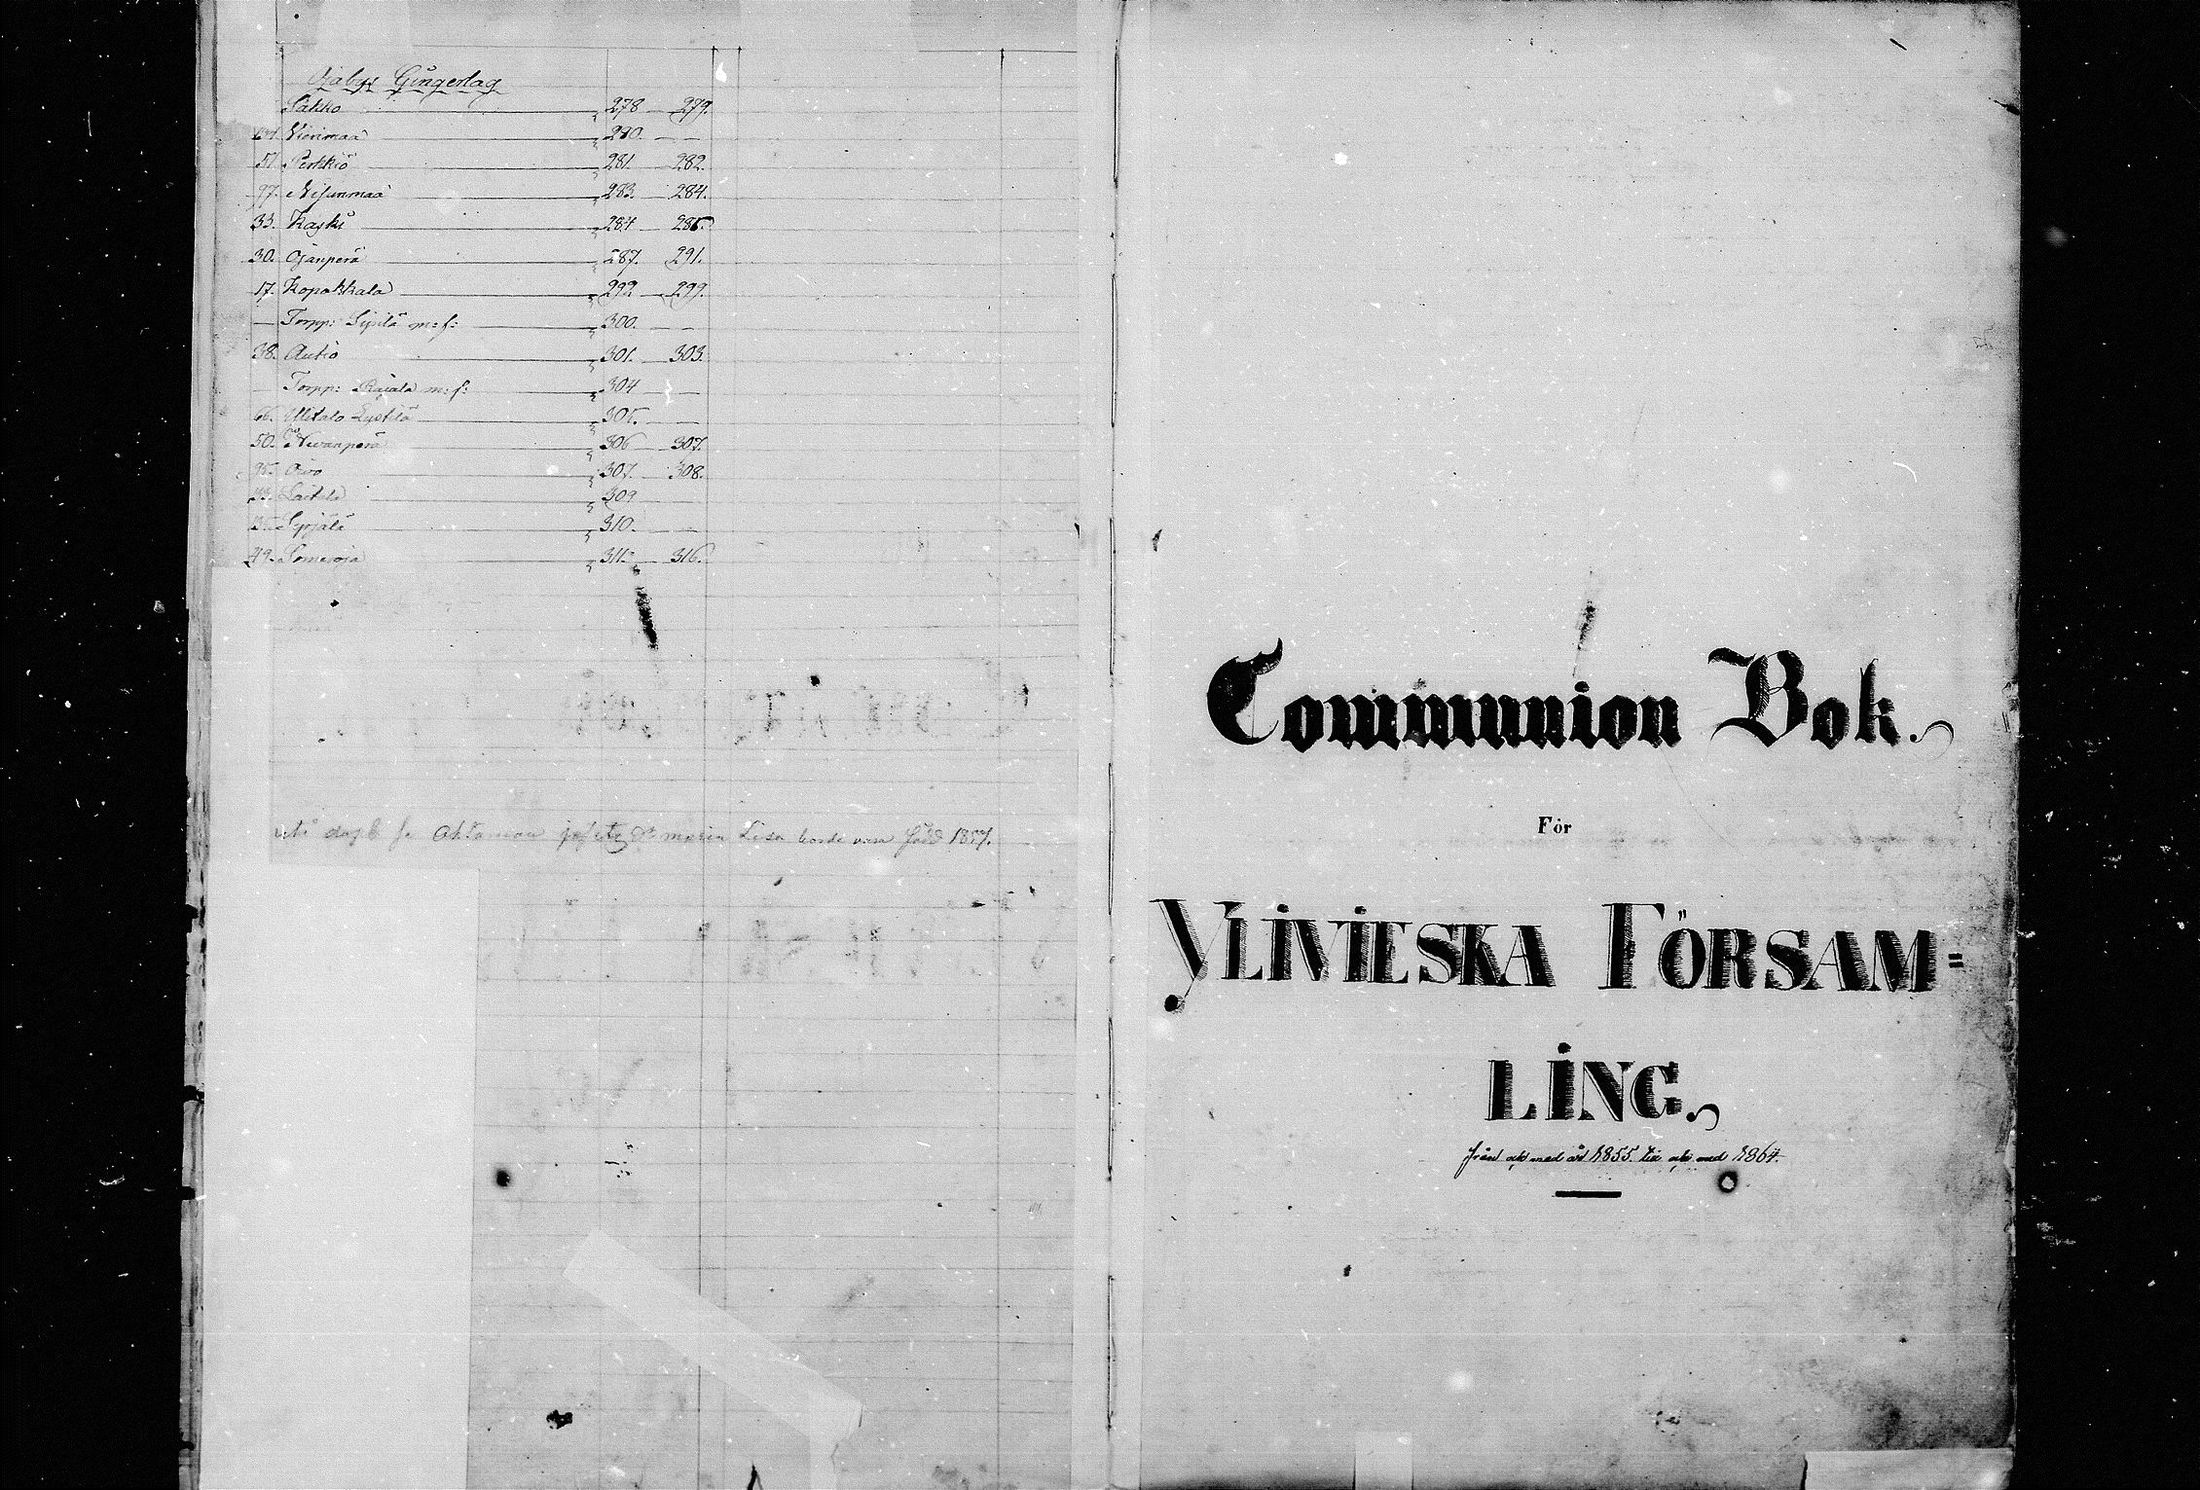 Gingerlag
Sakko 278 — 279.
Vierimaa 280. — —
51. Perkkiö 281 — 282.
97. Nisunmaa 283. — 284.
33. Kaski 284 — 285.
30. Ojanperä 287. 291.
17. Kopakkala 292 — 299.
— Torpp: Sipilä m:f: 300. — —
38. Autio 301. — 303.
— Torpp: Rajala m:f: 304 — —
66. Ylitalo 305. — —
50. Niwanperä 306 — 307.
95. Oivo 307. — 308.
309
Syrjälä 310. — —
49. Someroja 311. — 316.
maria Lisa borde vara född 1857.
Communion Bok.
För
YLIVIESKA FÖRSAM=
LING.
från och med år 1855. till och med 1864.